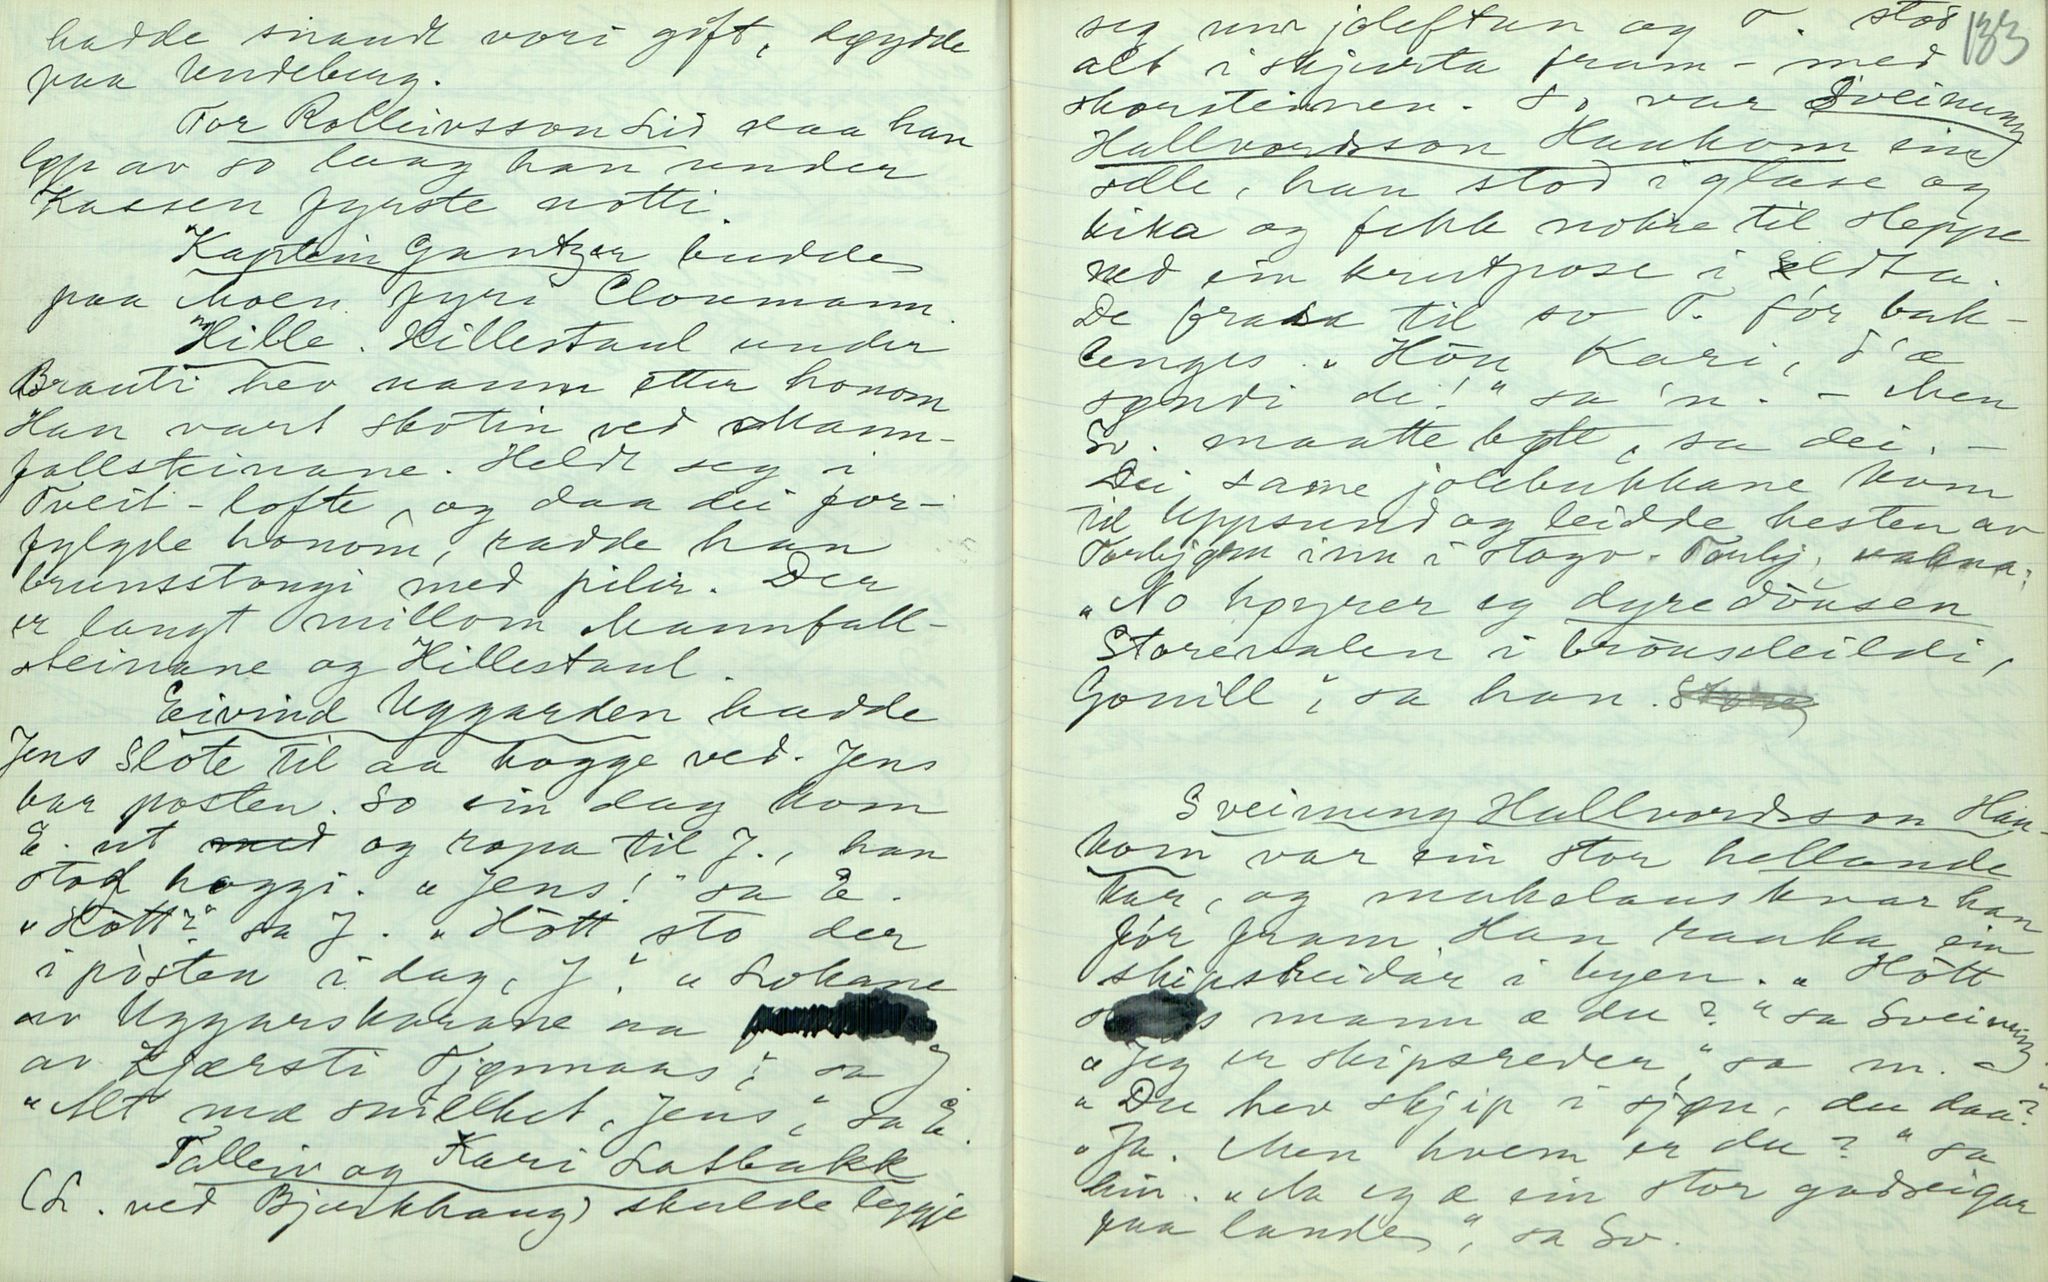 hadde snaudt vori gift, døydde
paa Vendeberg.
Tor Rolleivsson Lid daa han
løp av so laag han under
Kassen fyrste notti.
Kaptein Gantzer budde
paa Moen fyri Cloumann.
Hille. Hillestaul under
Brauti hev namn etter honom
Han vart skotin ved Mann-
fallsteinane. Heldt seg i
Tveit-lofte, og daa dei for-
fylgde honom, radde han
brunsstongi med pilir. Der
er langt millom Mannfall-
steinane og Hillestaul.
Eivind Uggarden hadde
Jens Slote til aa hogge ved. Jens
bar posten. So ein dag kom
E. ut med og ropa til J., han
stod hoggi. "Jens!" sa E.
"Hött?" sa J. "Hött sto der
i pòsten i dag, J." "Lokane
av Uggarskarane aa
av Kjærsti Tjønnaas", sa J.
"Alt mæ snillhet, Jens", sa E.
Talleiv og Kari Latbakk
(L. ved Bjørkhaug) skulde leggje
133
seg um joleftan og T. stod
alt i skjurta fram-med
skorsteinen. So var Sveinung
Hallvordsson Haukom ein
stelle, han stod i glase og
kika og fekk nokre til sleppe
ned ein krutpose i eldta.
De frasa til so T. fór bak-
lenges. "Höu Kari, d'æ
syndi di!" sa 'n. - Men
Sv. maatte bøte, sa dei. -
Dei same jolebukkane kom
til Uppsund og leidde hesten av
Torbjønn inn i stogo. Torbj. vakna:
"No høyrer eg dyredöusen
Storevalen i bröusdeildi,
Gonill", sa han.
Sveinung Hallvordsson Hau-
kom var ein stor hellande
kar, og makelaus kvar han
fór fram. Han raaka ein
skipsreidar i byen. "Hött
mann æ du?" sa Sveinung
"Jeg er skipsreder", sa m. -
"Du hev skjip i sjøn, du daa?"
"Ja. Men hvem er du?" sa
hin. "Aa eg æ ein stor godseigar
paa lande", sa Sv.